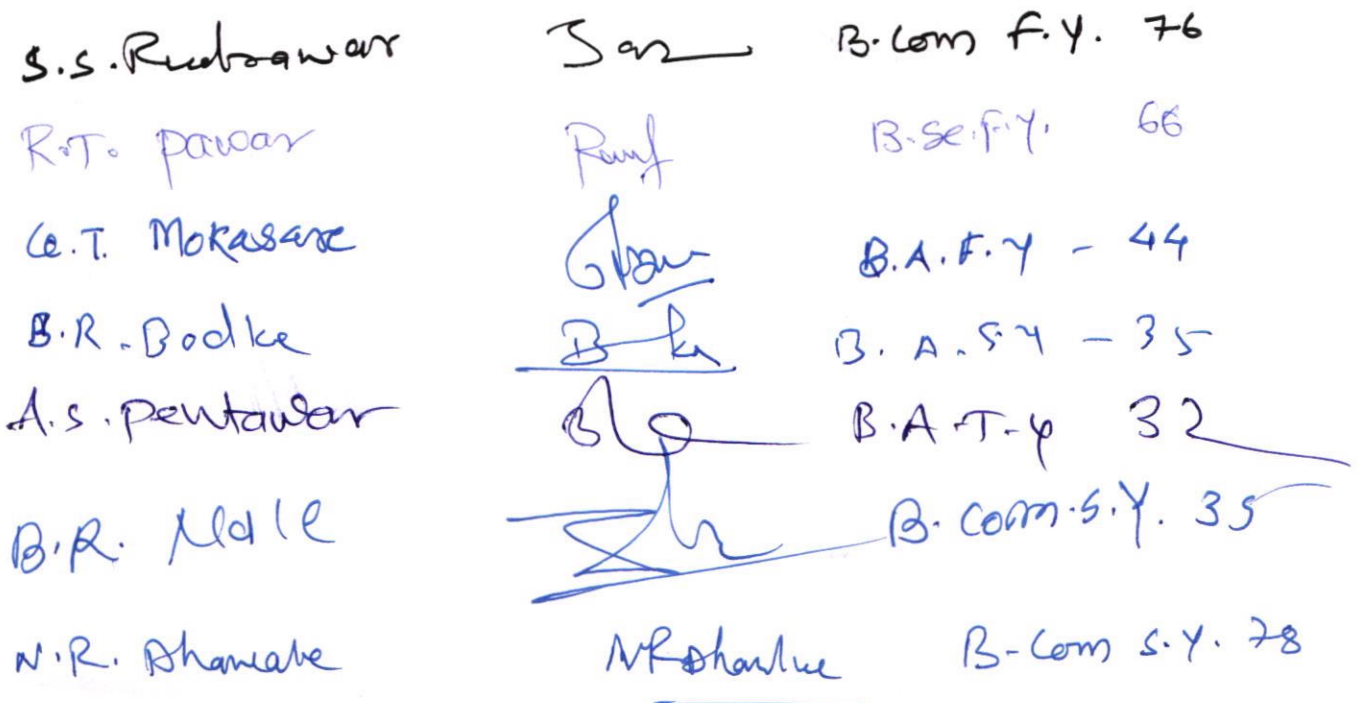 S.S. Rudrawar B.Com F.Y. 76
R.T. Pawar B.Sc.F.Y. 66
G.T. Mokasare B.A.F.Y - 44
B.R. Bodke B.A.S.Y - 35
A.S. Pentawar B.A.T.Y 32
B.R. Male B.Com.S.Y. 35
N.R. B-Com S.Y. 78